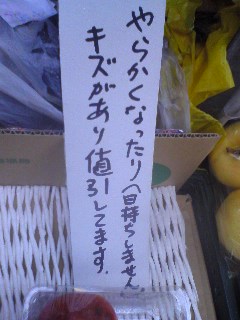 やらかくなったり(日持ちしません。
キズがあり値引してます。